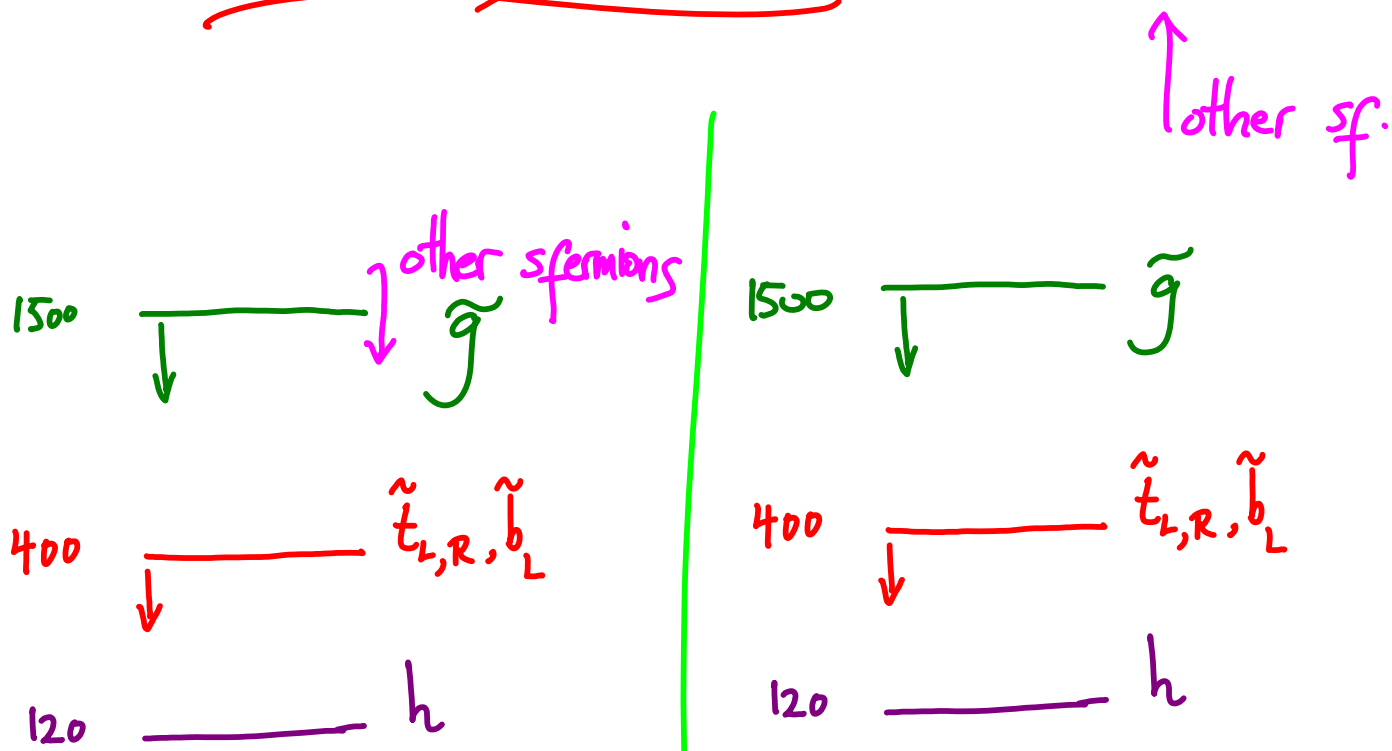 other sf.
other sfermions
1500 g̃
400 t̃L,R, b̃L
120 h
1500 g̃
400 t̃L,R, b̃L
120 h